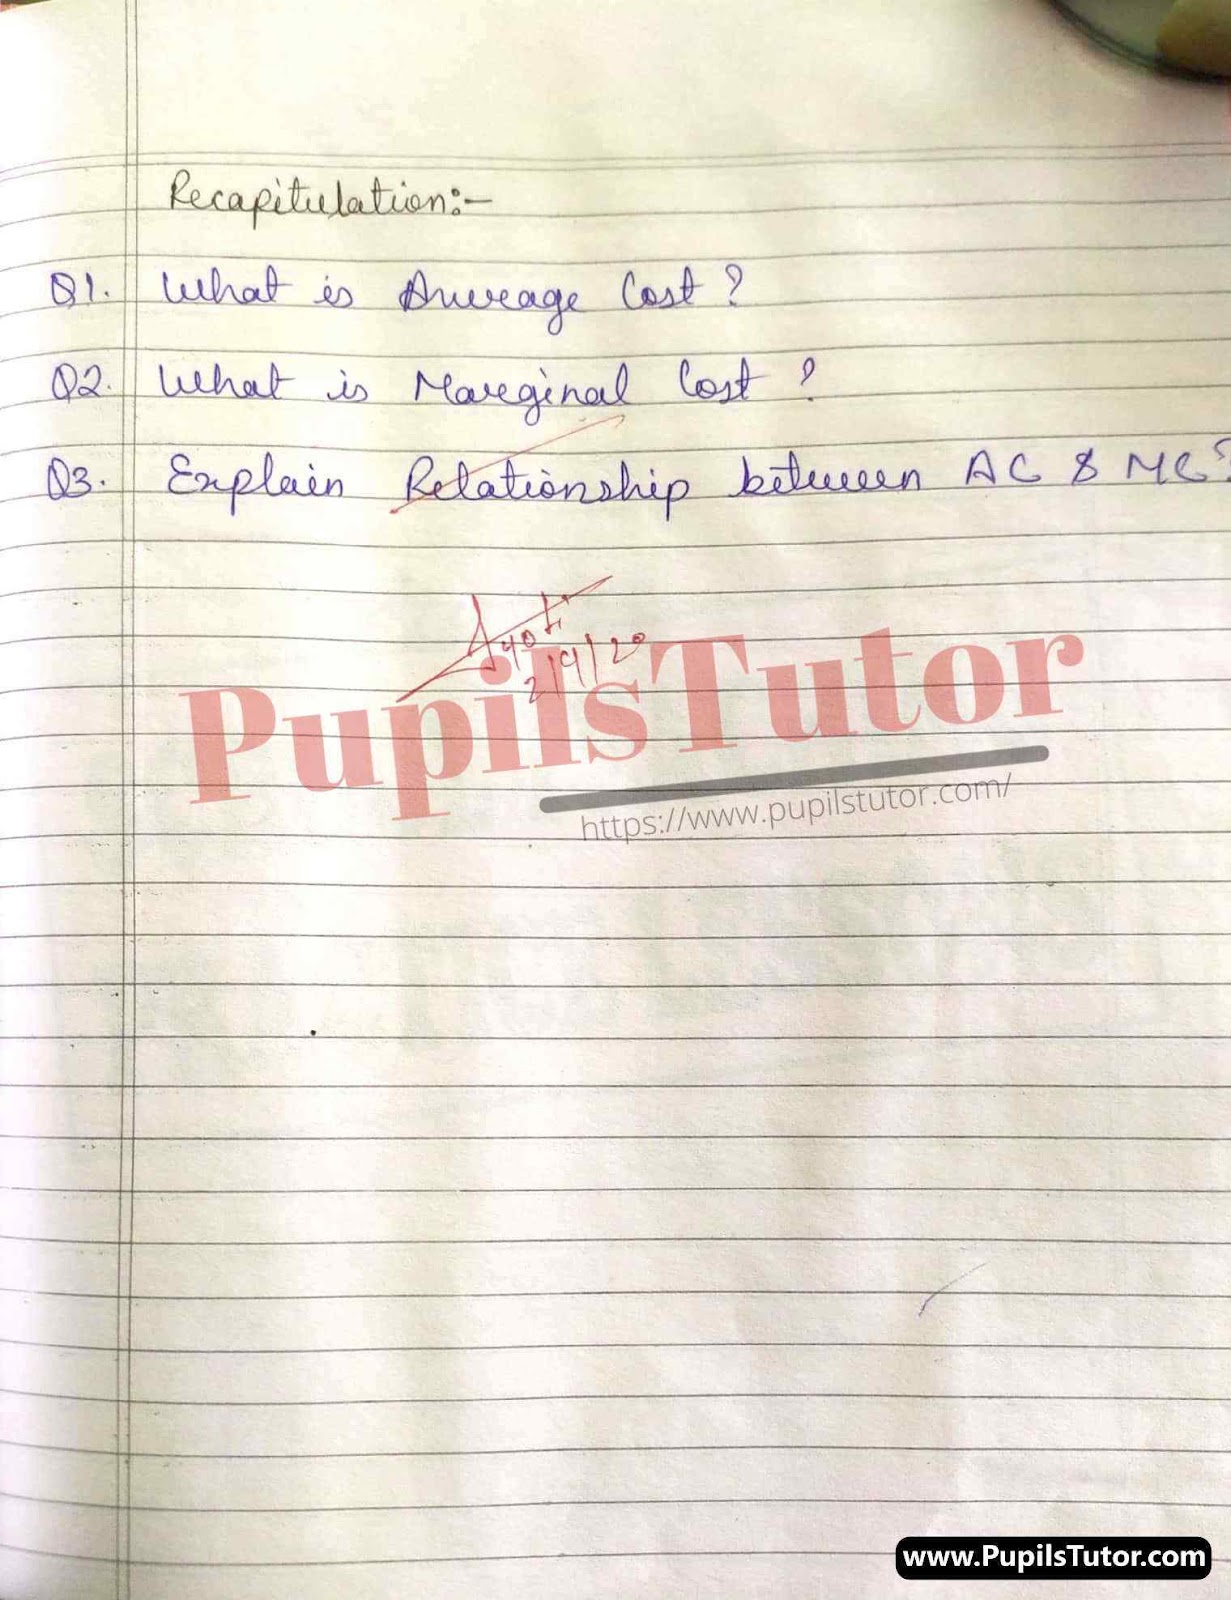 Recapitulation:-
Q1. What is Average Cost ?
Q2. What is Marginal Cost ?
Q3. Explain Relationship between AC & MC?
PupilsTutor
https://www.pupilstutor.com/
www.PupilsTutor.com